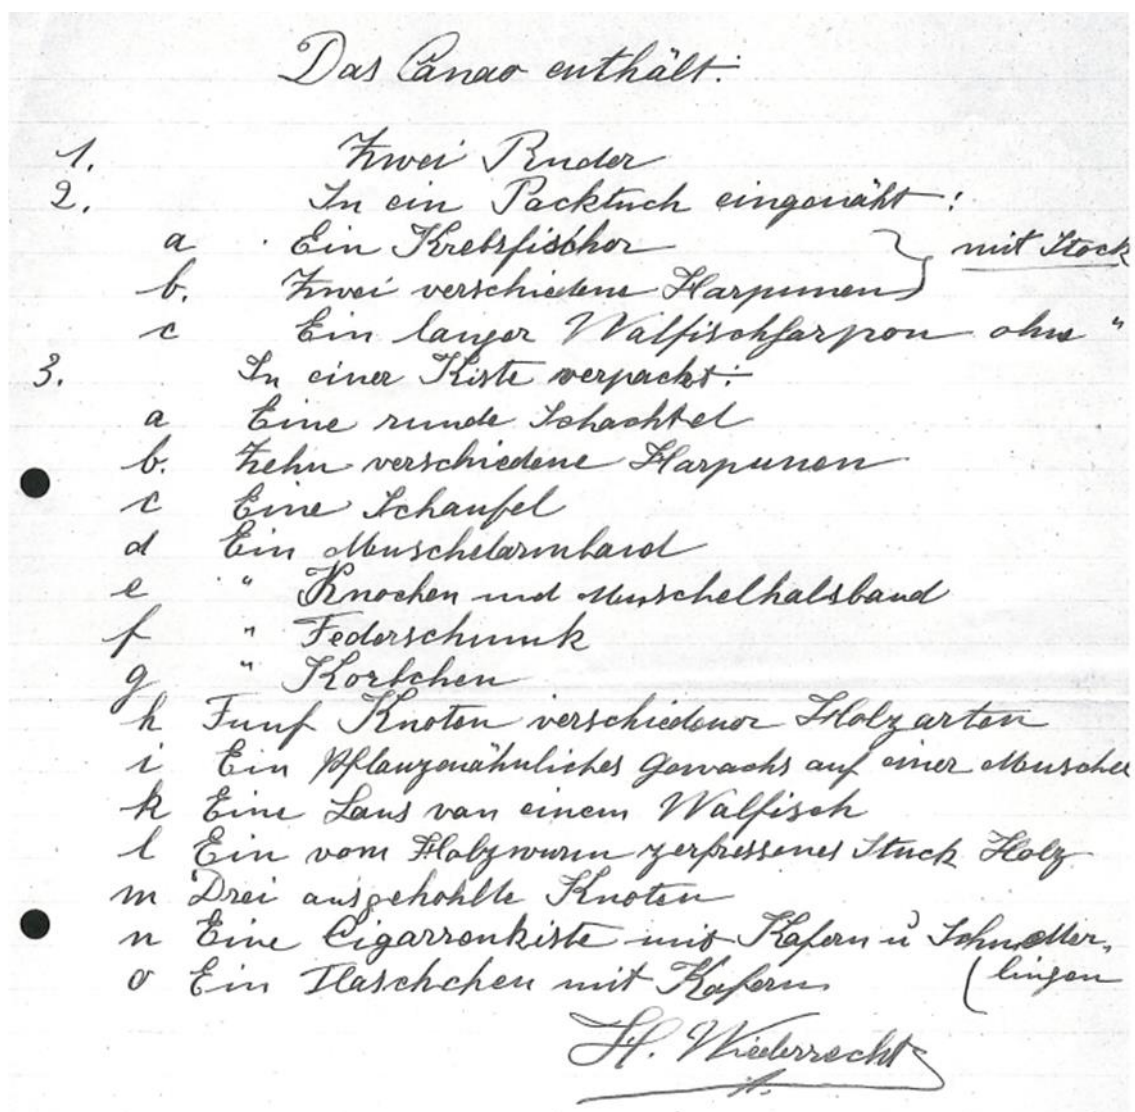 Das Canao enthält:
1. Zwei Ruder
2. In ein Packtuch eingenäht:
a Ein Krebsfischer } mit Stock
b. Zwei verschiedene Harpunen
c Ein langer Walfischharpon ohne "
3. In einer Kiste verpackt:
a Eine runde Schachtel
b. Zehn verschiedene Harpunen
c Eine Schaufel
d Ein Muschelarmband
e " Knochen und Muschelhalsband
f " Federschmuk
g " Korbchen
h Funf Knoten verschiedener Holzarten
i Ein Pflanzenähnliches Gewachs auf einer Muschel
k Eine Laus van einem Walfisch
l Ein vom Holzwurm zerfressenes Stuck Holz
m Drei ausgehohlte Knoten
n Eine Cigarrenkiste mit Kafern u Schmetter,
(lingen
o Ein Flaschchen mit Kafern
H. Wiederrecht